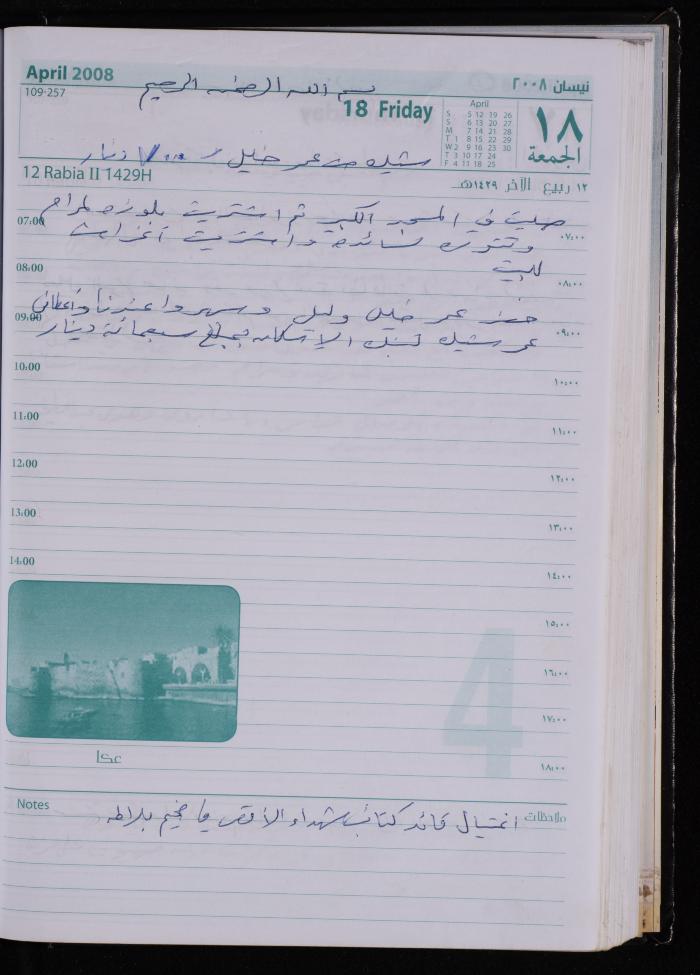 April 2008
نيسان ٢٠٠٨
بسم الله الرحمن الرحيم
109-257
18 Friday
April
S 5 12 19 26
S 6 13 20 27
M 7 14 21 28
T 1 8 15 22 29
W 2 9 16 23 30
T 3 10 17 24
F 4 11 18 25
١٨
الجمعة
شيك من عمر خليل دينار
12 Rabia II 1429H
١٢ ربيع الآخر ١٤٢٩هـ
صليت في المسجد الكبير ثم اشتريت بلوزة لمراح
07:00
٠٧:٠٠
وتنورة لسائدة واشتريت أغراض
للبيت
08:00
٠٨:٠٠
حضر عمر خليل وليل وسهروا عندنا وأعطاني
09:00
٠٩:٠٠
عمر شيك لبنك الإسكان بمبلغ سبعمائة دينار
10:00
١٠:٠٠
11:00
١١:٠٠
12:00
١٢:٠٠
13:00
١٣:٠٠
14:00
١٤:٠٠
١٥:٠٠
١٦:٠٠
١٧:٠٠
١٨:٠٠
4
عكا
Notes
ملاحظات
اغتيال قائد كتائب شهداء الأقصى في مخيم بلاطه